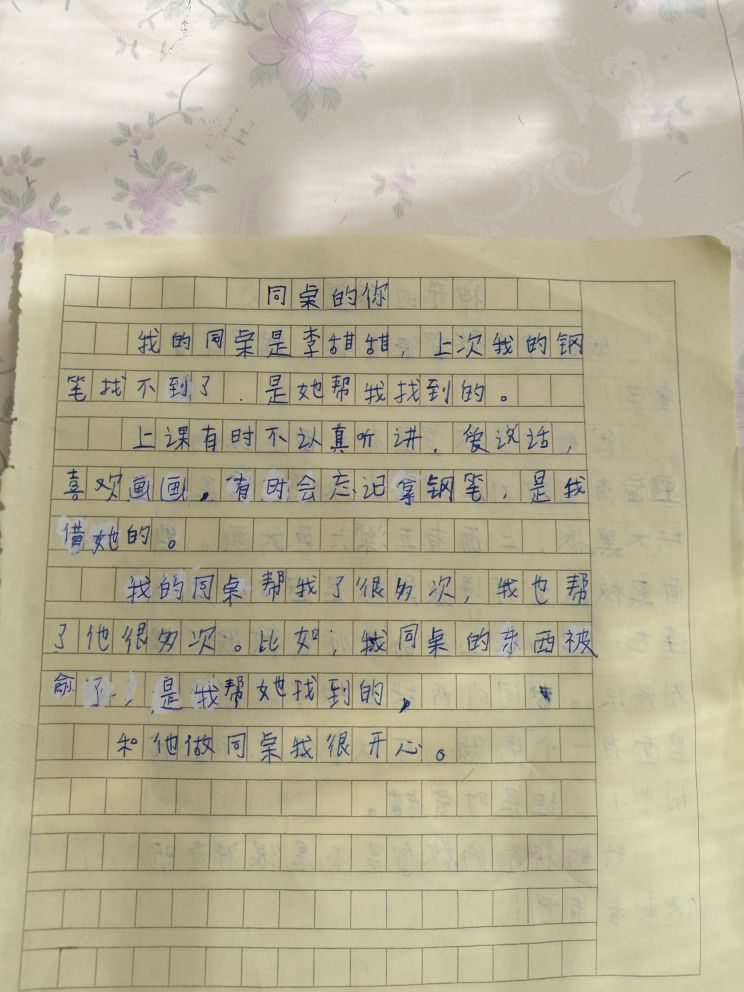 同桌的你
我的同桌是李甜甜，上次我的钢
笔找不到了.是她帮我找到的。
上课有时不认真听讲.爱说话，
喜欢画画，有时会忘记拿钢笔，是我
借她的。
我的同桌帮我了很多次，我也帮
了他很多次。比如，我同桌的东西被
俞了，是我帮她找到的，
和他做同桌我很开心。